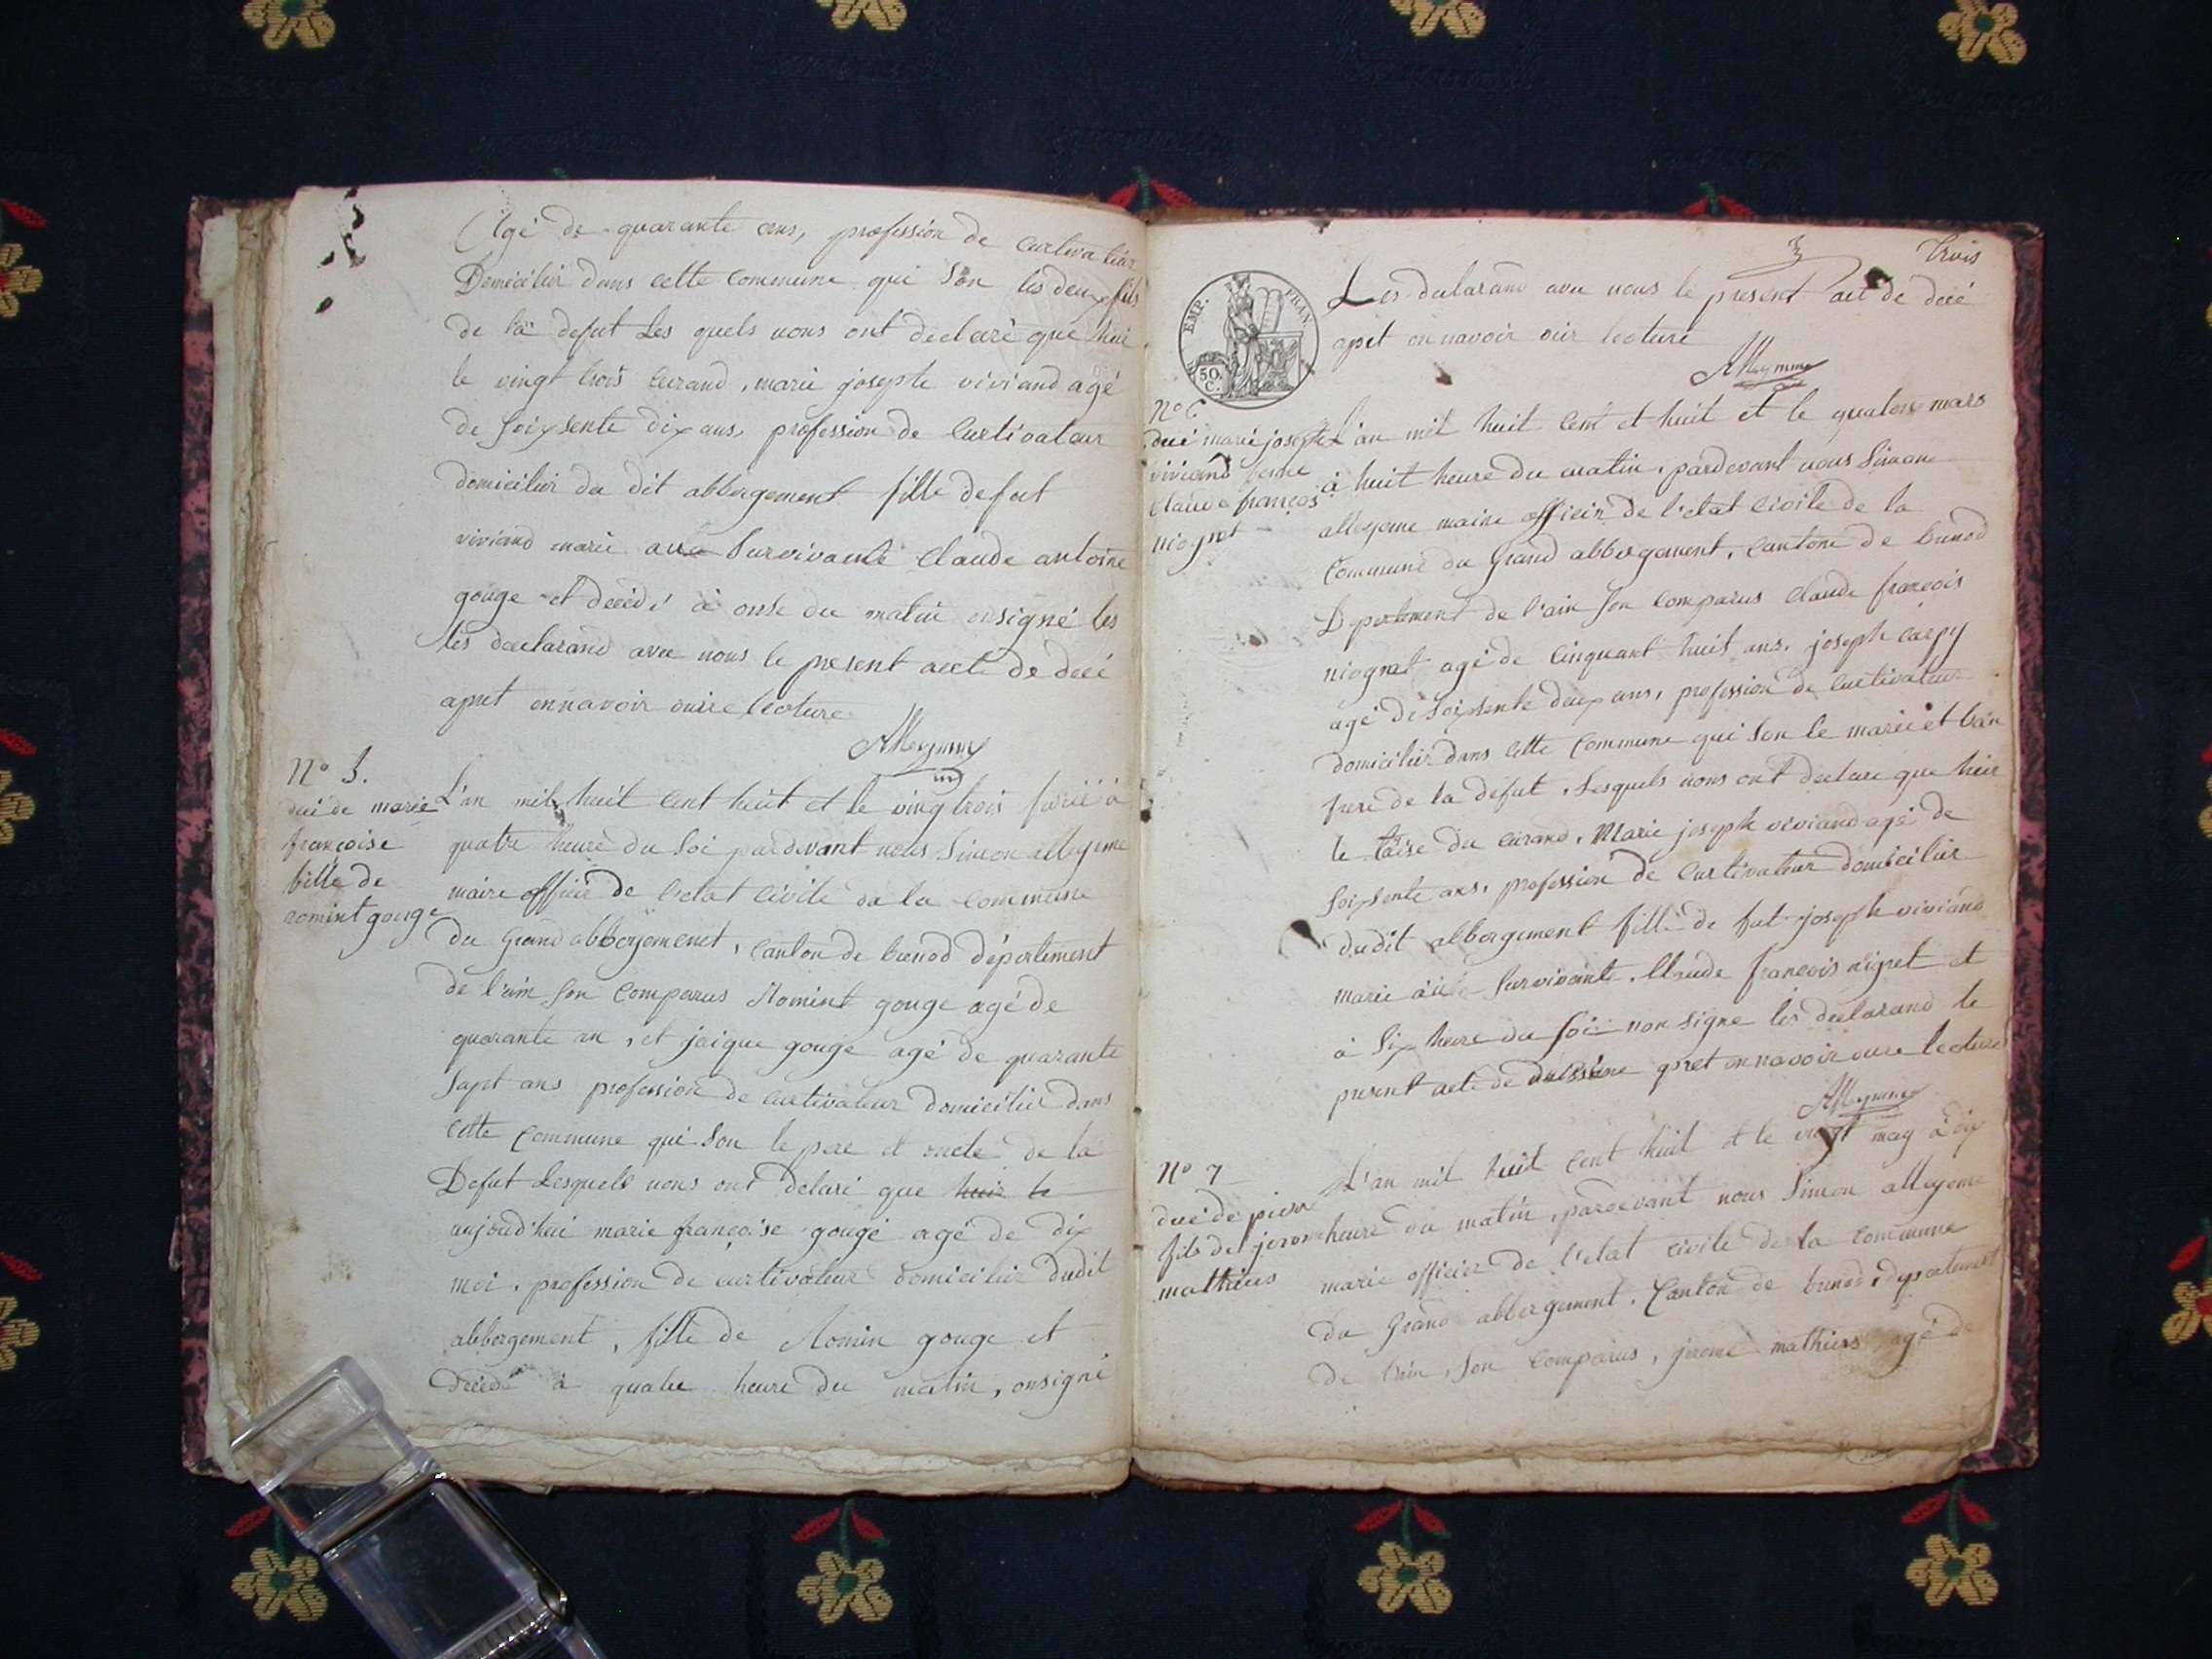 Agé de quarante ans, profession de curtivateur
Domicilier dans cette commune qui son les deux fils
de la defut Les quels nous ont declaré que hier
le vingt trois courand, marie josephe viviand agé
de soixsente dix ans, profession de Curtivateur
domicilier du dit abbergement fille defut
viviand marie avec Survivante Claude antoine
gouge et decédé à onse du matin onsigné les
les declarand avec nous le present acte de decé
apret onnavoir ouire lecture
Alleyme
N° 5.
decé de marie
françoise
fille de
romint gouge
L'an mil huit cent huit et le vingtrois
quatre heure du Soi pardevant nous Simon alleyme
maire officié de l'etat civile de la commune
du Grand abbergement, canton de brenod département
de l'ain son comparus Romint gouge agé de
quarante an, et jaique gouge agé de quarante
sept ans profession de curtivateur domicilié dans
cette commune qui son le pere et oncle de la
Defut Lesquels nous ont delaré que hier le
aujoud'hui marie françoise gouge agé de dix
moi, profession de curtivateur domicilier dudit
abbergement, fille de Romin gouge et
decédé à quatre heure du matin, onsigné
3 trois
EMP. FRAN.
50. C.
Les declarand avec nous le present act de decé
apret onnavoir ouir lecture
Alleyme
N° 6
decé marie josephe
viviand feme
claude françois
niogret
L'an mil huit cent et huit et le quatorse mars
à huit heure du matin, pardevant nous Simon
alleyeme maire officier de l'etat civile de la
Commune du Grand abbergement, cantone de brenod
Department de l'ain son comparus Claude françois
niogret agé de cinquant huit ans, joseph carpy
agé de Soixsente deux ans, profession de curtivateur
domicilier dans cette commune qui son le marié et
frere de la defut, Lesquels nous ont declare que hier
le taise du courand, Marie joseph viviand agé de
soixsente ans, profession de curtivateur domicilier
dudit abbergement fille de fut joseph viviand
marie Survivante, Claude françois nigret et
à Six heure du soi non signe les declarand le
present acte de apret onnavoir ouire lecture
Alleyme
N° 7
decé de pierre
fils de jerome
mathieus
L'an mil huit cent huit et le vingt may à dix
heure du matin, pardevant nous Simon alleyeme
marie officier de l'etat civile de la commune
du Grand abbergement, Canton de brenod,
de l'ain, son comparus, jerome mathieus agé de